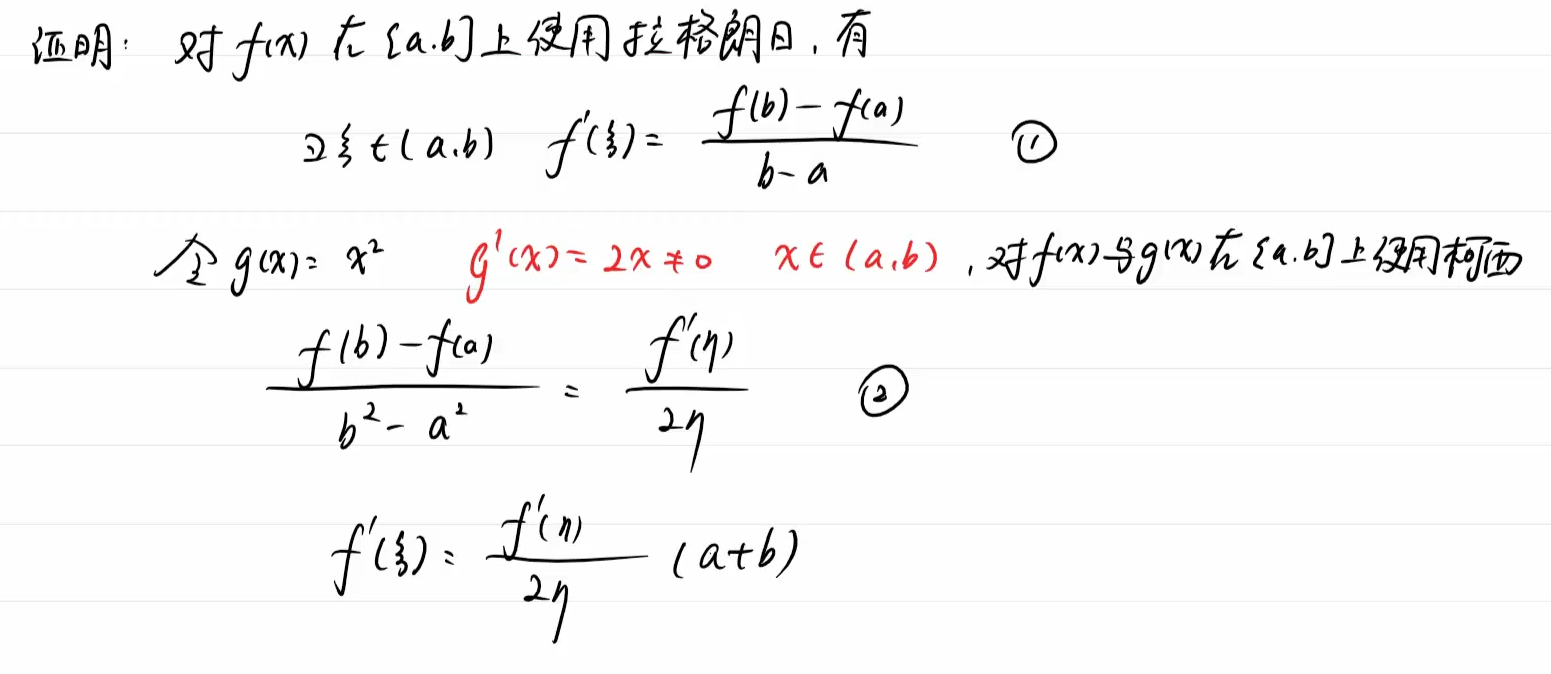 证明: 对 f(x) 在 [a.b] 上使用拉格朗日, 有
∃ξ∈(a.b) f'(ξ) = \frac{f(b)-f(a)}{b-a} ①
令 g(x) = x² g'(x) = 2x ≠ 0 x∈(a,b), 对 f(x) 与 g(x) 在 [a.b] 上使用柯西
\frac{f(b)-f(a)}{b²-a²} = \frac{f'(η)}{2η} ②
f'(ξ) = \frac{f'(η)}{2η} (a+b)